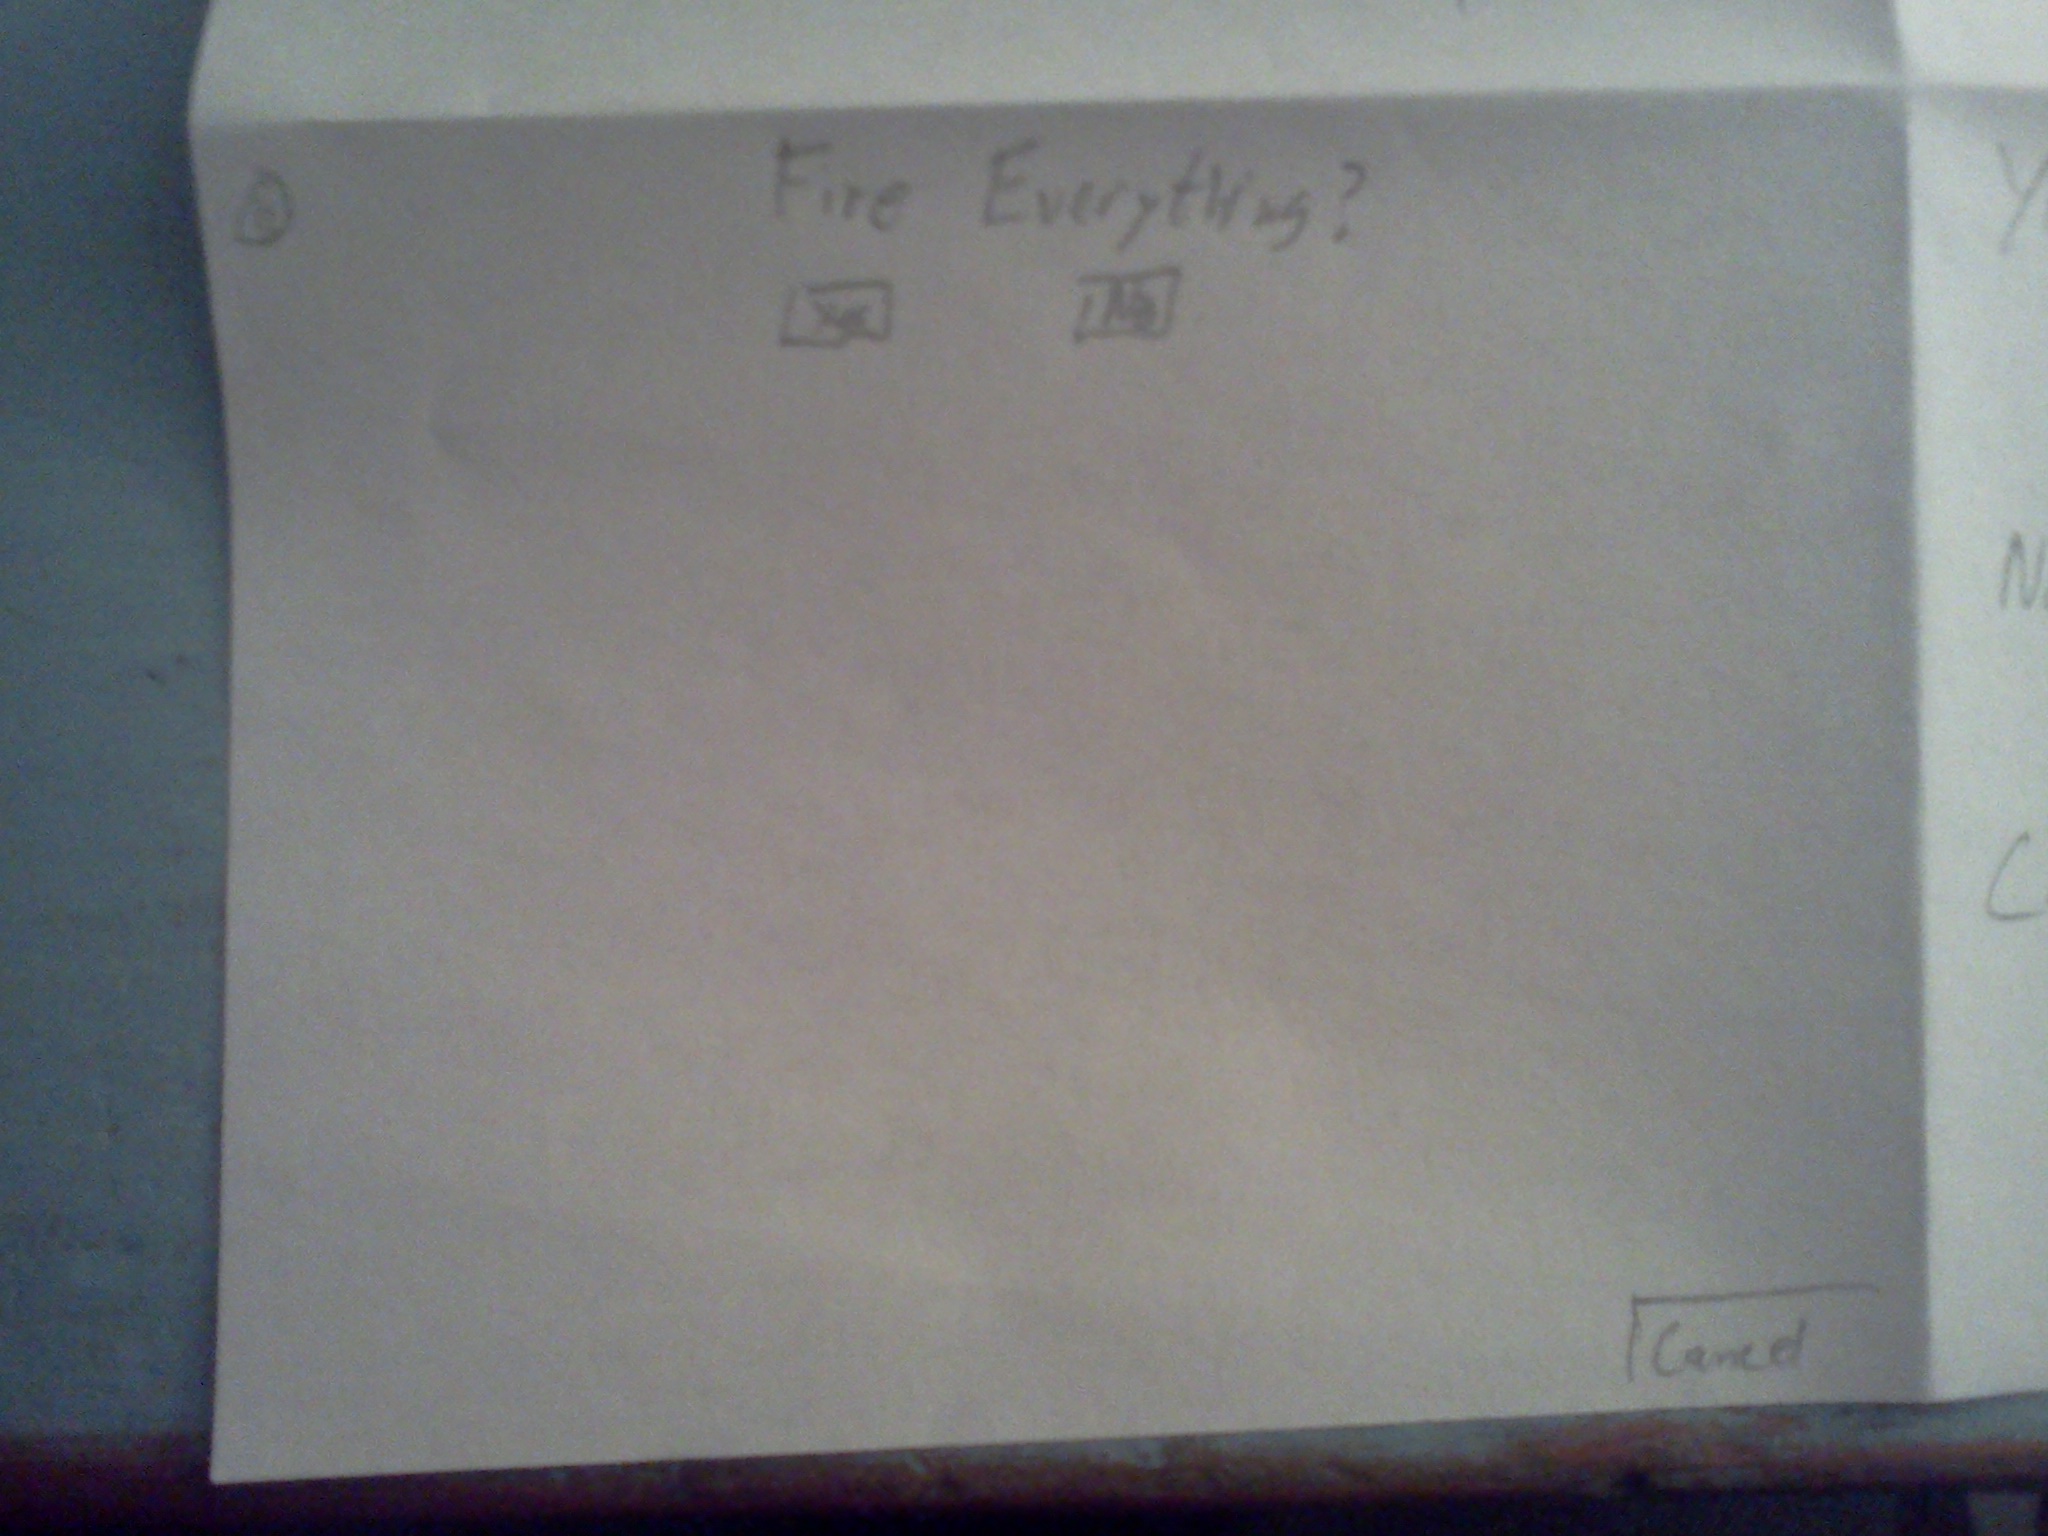 Fire Everything?
Yes No
Cancel